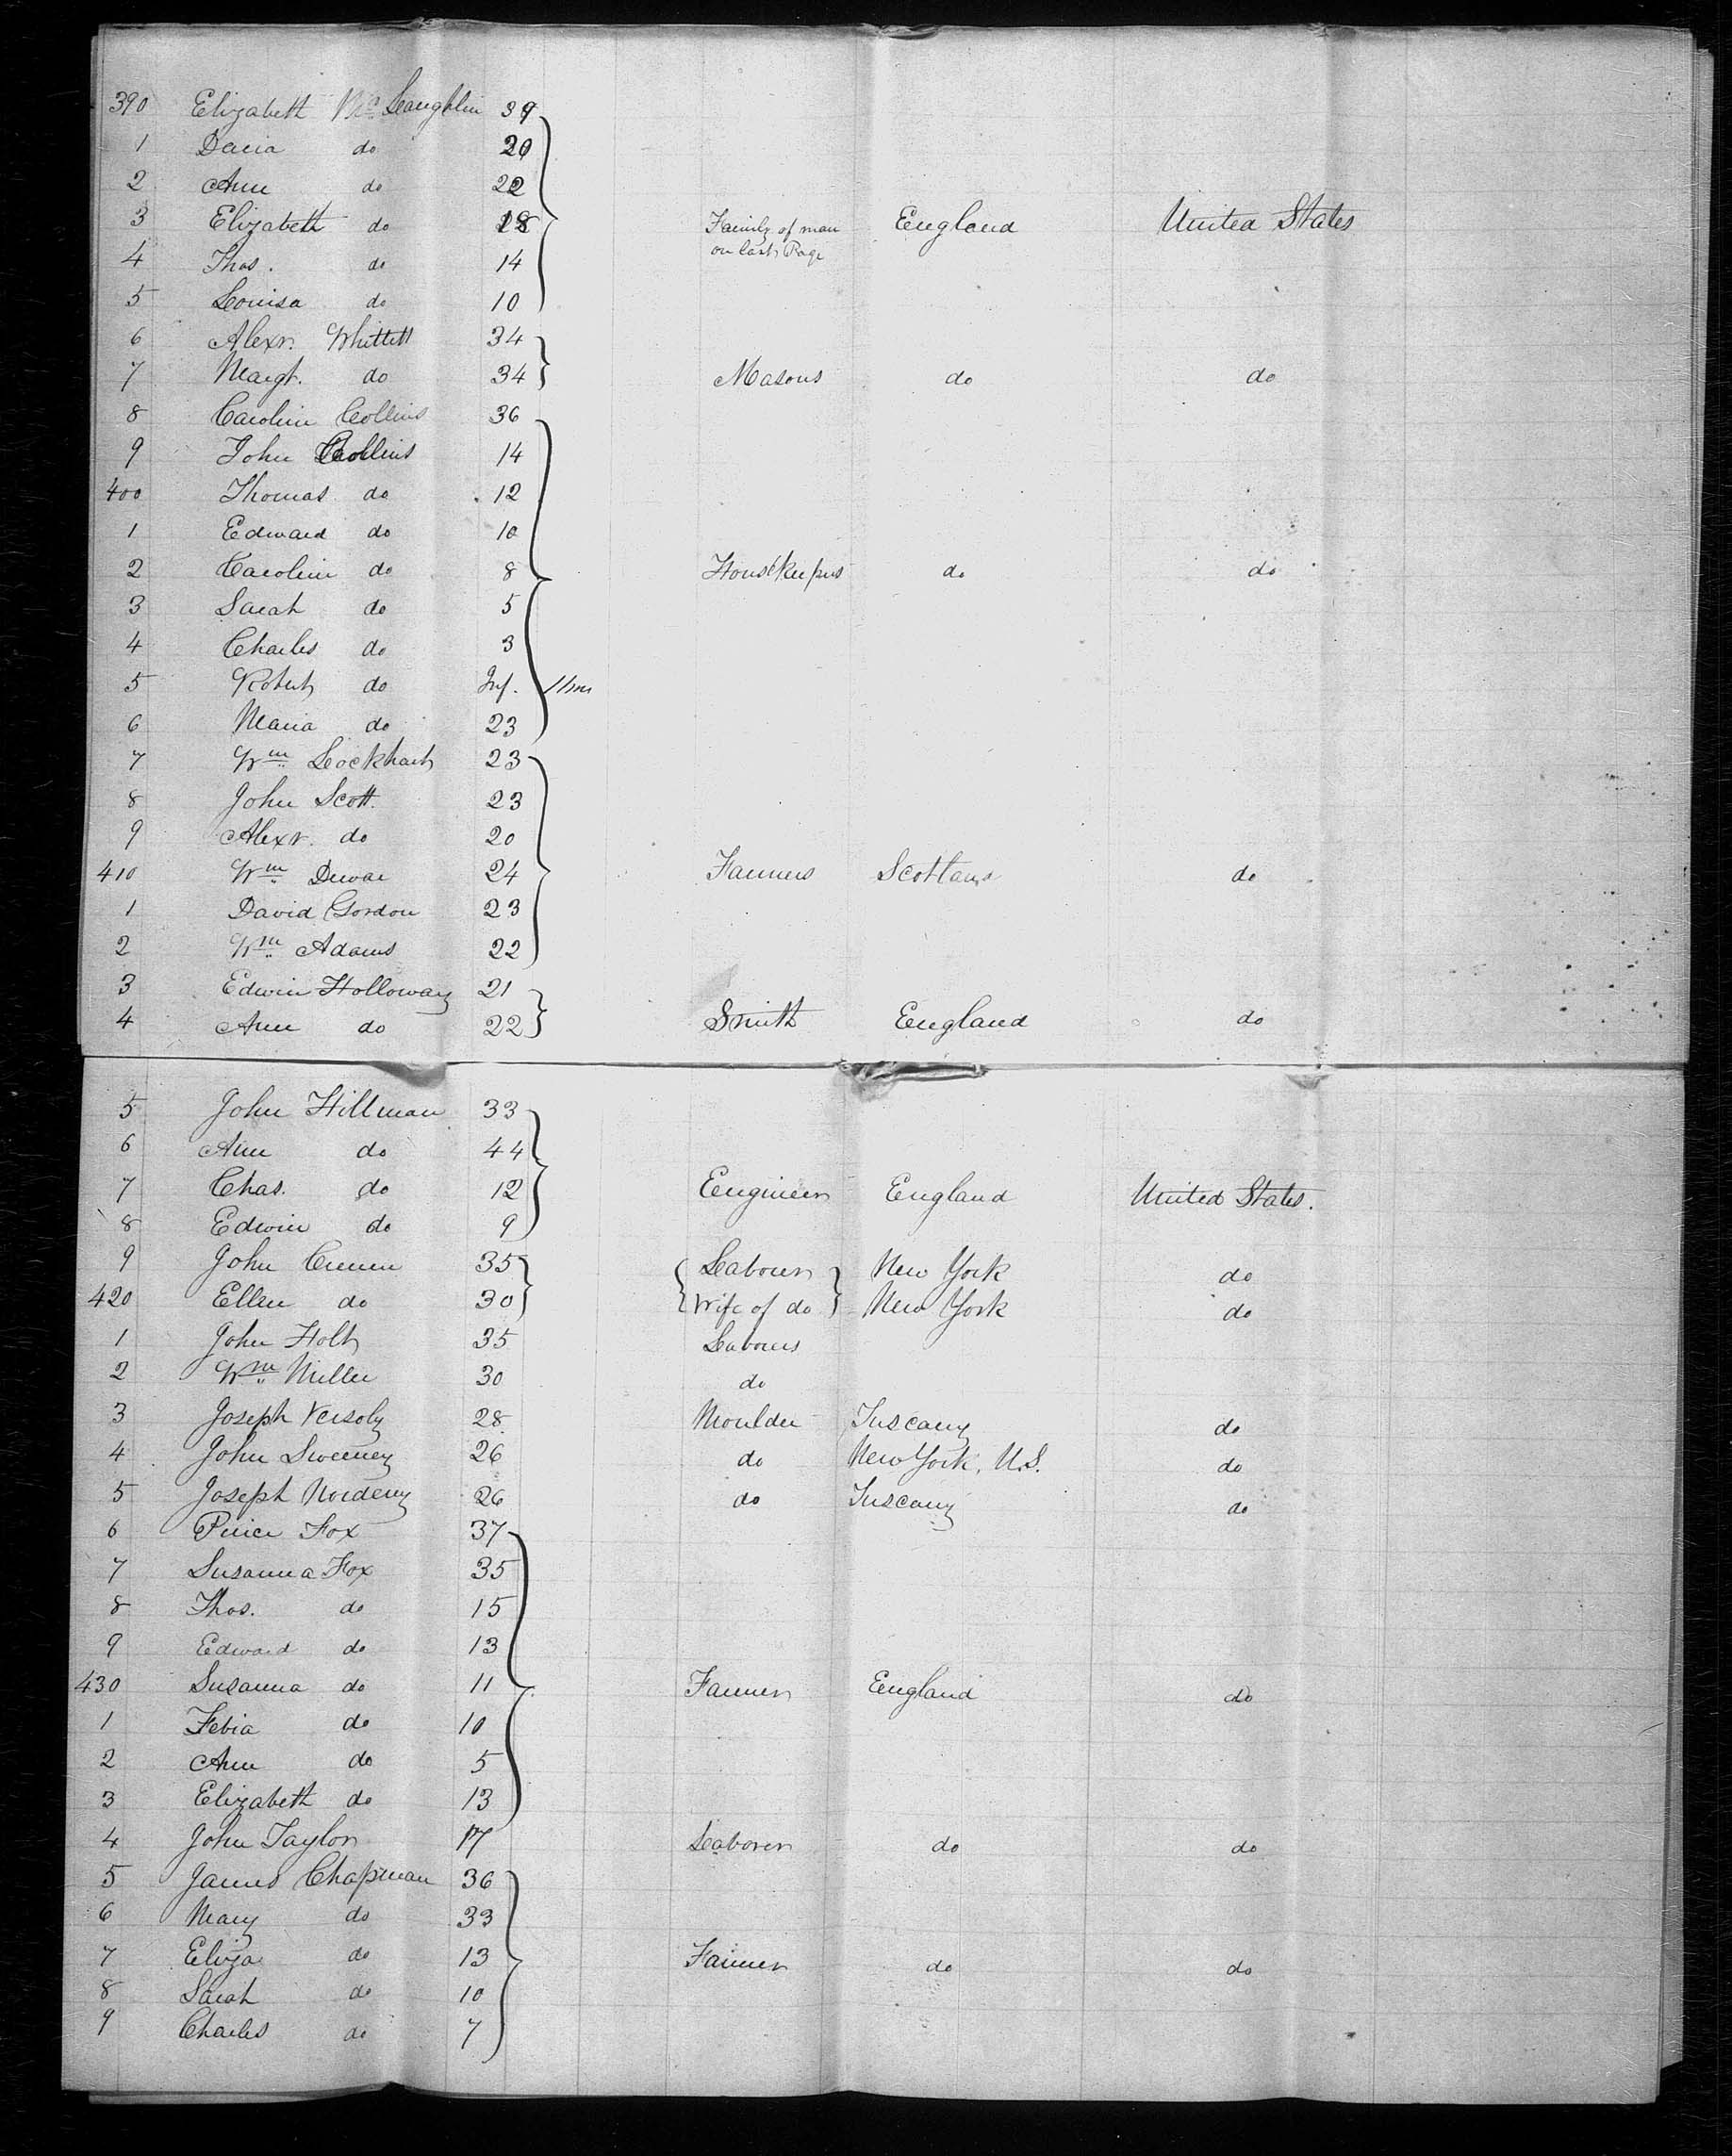 390 Elizabeth McLaughlin 39
1 Daria do 20
2 Ann do 22
3 Elizabeth do 18 Family of man on last Page England United States
4 Thos. do 14
5 Louisa do 10
6 Alexr. Whittett 34
7 Margt. do 34 Masons do do
8 Caroline Collins 36
9 John Collins 14
400 Thomas do 12
1 Edward do 10
2 Caroline do 8 Housekeepers do do
3 Sarah do 5
4 Charles do 3
5 Robert do Inf.
6 Maria do 23
7 Wm Lockhart 23
8 John Scott. 23
9 Alexr. do 20
410 Wm Dewar 24 Farmers Scotland do
1 David Gordon 23
2 Wm Adams 22
3 Edwin Holloway 21
4 Ann do 22 Smith England do
5 John Hillman 33
6 Ann do 44
7 Chas. do 12 Engineer England United States.
8 Edwin do 9
9 John 35 Labourer New York do
420 Ellen do 30 Wife of do New York do
1 John Holt 35 Labourer
2 Wm Miller 30 do
3 Joseph Versoly 28 Moulder Tuscany do
4 John Sweeney 26 do New York, U.S. do
5 Joseph 26 do Tuscany do
6 Fox 37
7 Susanna Fox 35
8 Thos. do 15
9 Edward do 13
430 Susanna do 11 Farmer England do
1 Febia do 10
2 Ann do 5
3 Elizabeth do 13
4 John Taylor 17 Laborer do do
5 James Chapman 36
6 Mary do 33
7 Eliza do 13 Farmer do do
8 Sarah do 10
9 Charles do 7